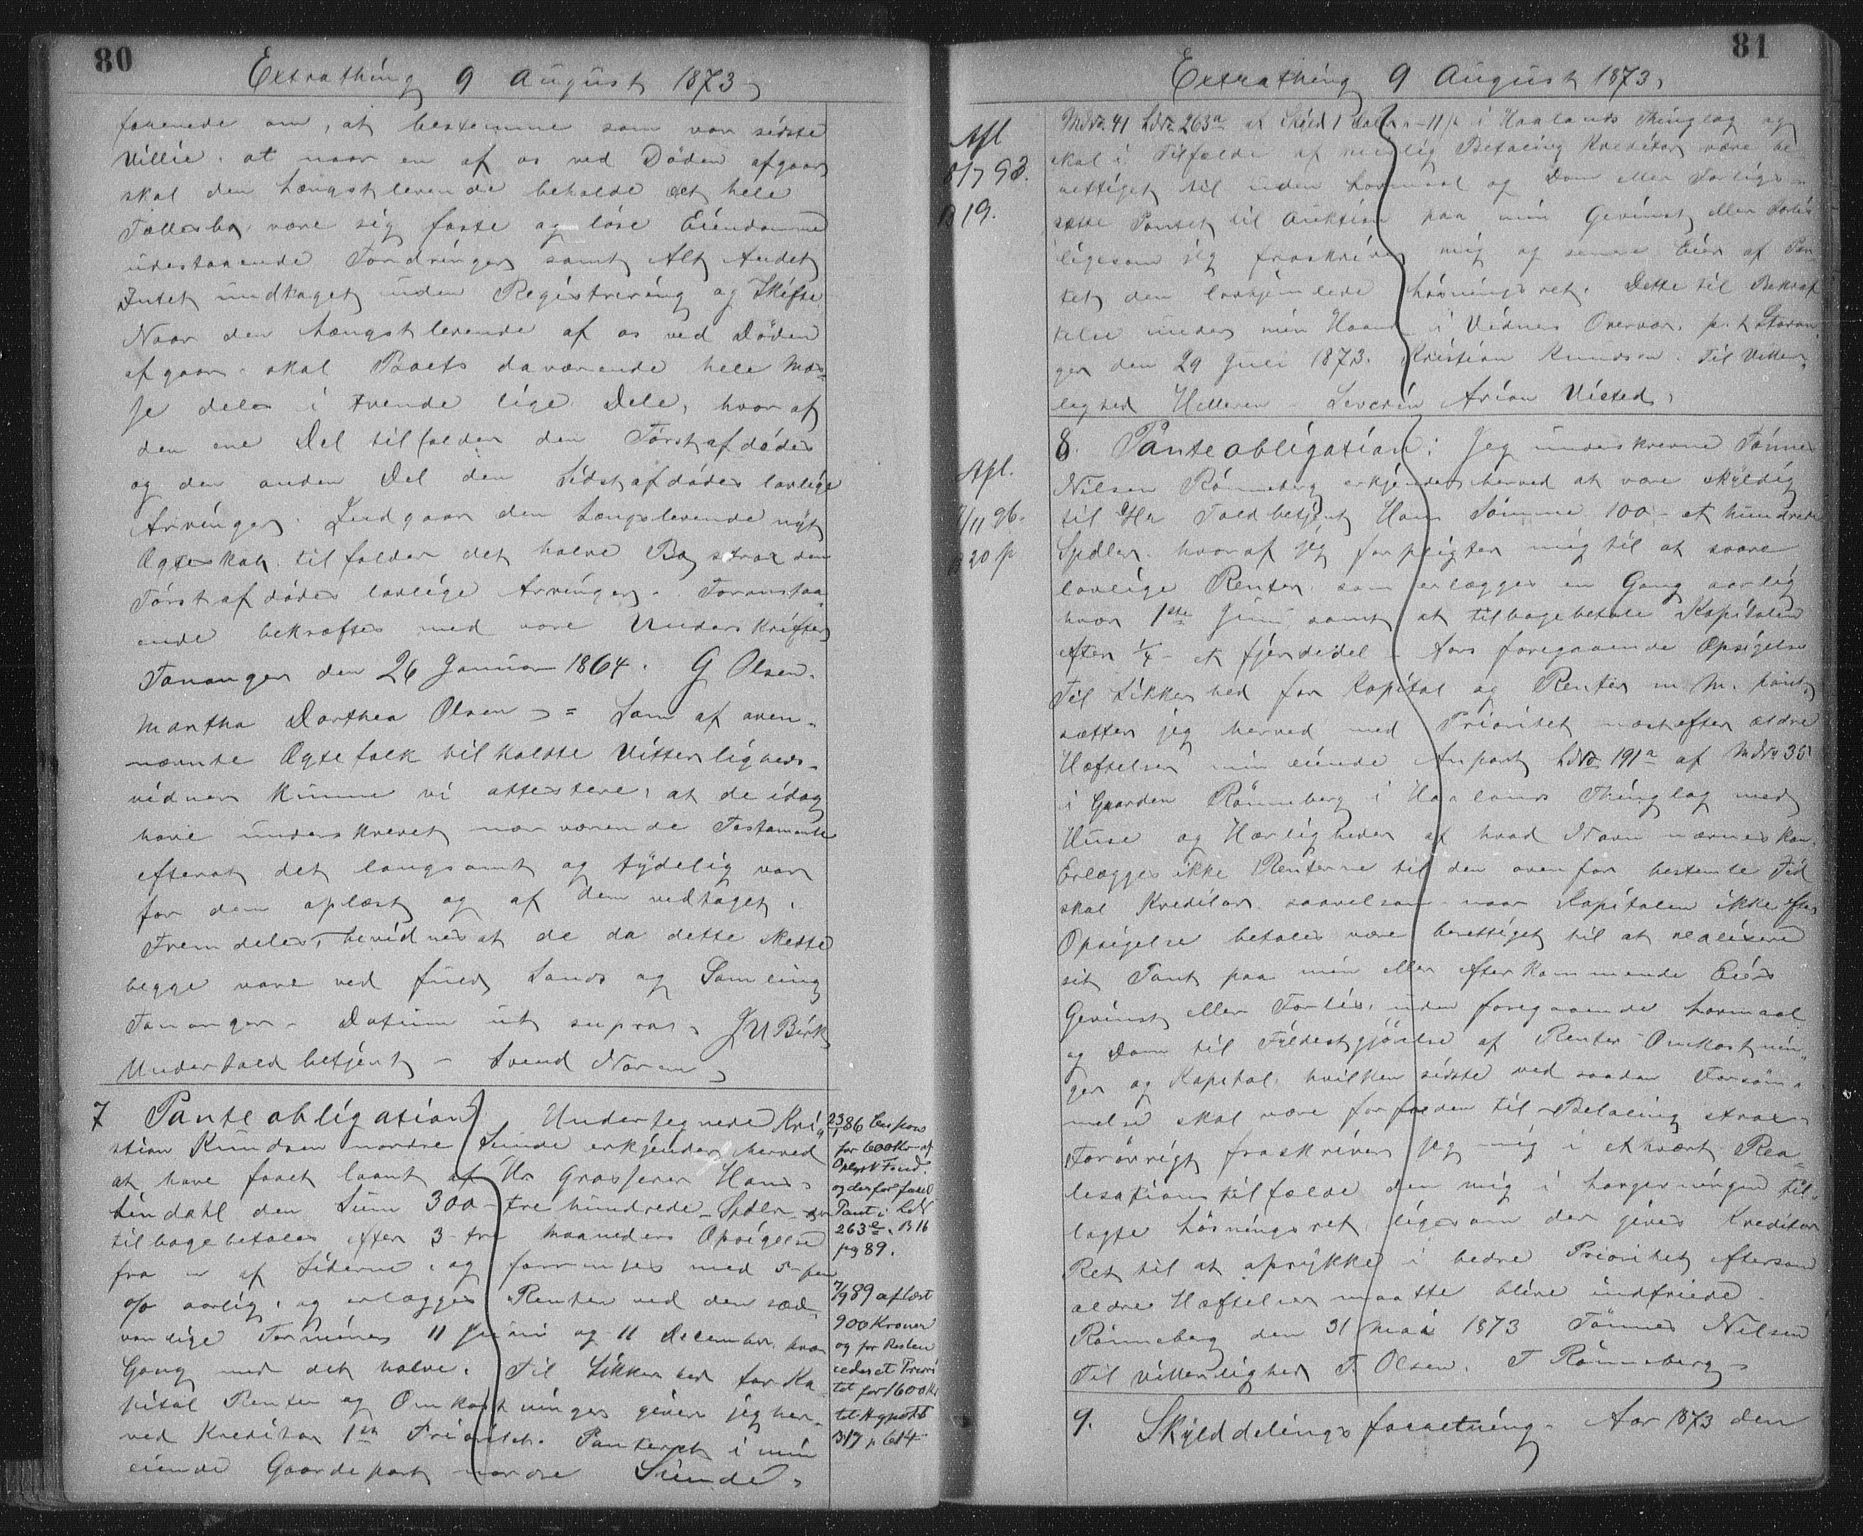 80
Extrathing 9 August 1873
faaende om, at bestemme som vor sidste
Villie. at naar en af os ved Døden afgaar
skal den Længstlevende beholde det hele
Fællesbo være sig faste og løse Eiendomme
udestaaende Fordringer samt Alt Andet
Intet undtaget uden Registrering og Skifte
Naar den Længstlevende af os ved Døden
afgaar skal Boets daværende hele Mas-
se deles i tvende lige Dele, hvoraf
den ene Del tilfalder den Førstafdødes
og den anden Del den Sidstafdødes lovlige
Arvinger. Indgaar den Længslevende nyt
Ægteskab tilfalder det halve Bo strax den
Førstafdødes lovlige Arvinger. Foranstaa-
ende bekræftes med vore Underskrifter
Tananger den 26 Januar 1864. G Olsen.
Martha Dorthea Olsen = Som af oven-
nævnte Ægtefolk tilkaldte Vitterligheds-
vidner kunne vi attestere, at de idag
have underskrevet nærværende Testamente
efterat det langsomt og tydelig var
for dem oplæst og af dem vedtaget.
Fremdeles bevidnes at de da dette skedte
begge vare ved fuld Sands og Samling
Tananger. Datum ut supra. J U Birk
Undertoldbetjent - Svend Noren
7 Panteobligation Undertegnede Kri-
stian Knudsen nordre Sunde erkjender herved
at have faaet laant af Hr Grosserer Hans
Lindahl den Sum 300 - tre hundrede - Spdlr
tilbagebetales efter 3 - tre Maaneders Opsigelse
fra en af Siderne, og forrentes med 5 fem
o/o aarlig, og erlægges Renten ved den sæd-
vanlige Terminer 11 Juni og 11 December, hver
Gang med det halve. Til Sikkerhed for Ka-
pital Renter og Omkostninger giver jeg her-
ved Kreditor 1ste Prioritet. Panteret i min
eiende Gaardepart nordre Sunde
23/1 86
for 600 Kr
og derfor
Pant i LNr
263 B16
pag 89.
7/9 89 aflæst
900 Kroner
og for Resten
tet for 1600 Kr
til Hypothb
B17 p 614
81
Extrathing 9 August 1873
Afl
8/7 93.
B19.
MNr. 41 LNr. 263a af Skyld 1 Daler - 11 ß i Haalands Thinglag og
skal i Tilfælde af mislig Betaling Kreditor være be-
rettiget til uden Lovmaal og Dom eller Forligs-
sætte Pantet til Auktion paa min Gevinst eller Forlis
ligesom jeg fraskriver mig og senere Eier af Pan-
tet den lovhjemlede Løsningsret. Dette til Bekræf-
telse under min Haand i Vidners Overvær. p. t Stavan-
ger den 29 Juli 1873. Kristian Knudsen. Til Vitter-
lighed Hetteren - Severin Arion Visted
Afl.
/11 96.
B20 p
8. Panteobligation: Jeg underskrevne Tønnes
Nilsen Rønneberg erkjender herved at være skyldig
til Hr Toldbetjent Hans Sømme 100 - et hundrede
Spdlr. hvoraf jeg forpligter mig til at svare
lovlige Renter som erlægges en Gang aarlig
hver 1ste Juni samt at tilbagebetale Kapitalen
efter 1/4 - et fjerdedel - Aars foregaaende Opsigelse
Til Sikkerhed for Kapital og Renter m. M. pant-
sætter jeg herved med Prioritet næstefter ældre
Hæftelser min eiende Anpart LNr. 191a af MNr. 35
i Gaarden Rønneberg i Haalands Thinglag med
Huse og Herligheder af hvad Navn nævnes kan.
Erlægges ikke Renterne til den ovenfor bestemte Tid
skal Kreditor saavelsom naar Kapitalen ikke efter
Opsigelse betales være berettiget til at realisere
sit Pant paa min eller efterkommende Eiers
Gevinst eller Forlis, uden foregaaende Lovmaal
og Dom til Fyldestgjørelse af Renter Omkostnin-
ger og Kapital, hvilken sidste ved saadan Forsøm-
melse skal være forfalden til Betaling strax
Forøvrigt fraskriver jeg mig i ethvert Rea-
lisationstilfælde den mig i Lovgivningen til-
lagte Løsningsret, ligesom der gives Kreditor
Ret til at oprykke i bedre Prioritet eftersom
ældre Hæftelser maatte blive indfriede.
Rønneberg den 31 Mai 1873 Tønnes Nilsen
Til vitterlighed T. Olsen. T Rønneberg
9. Skylddelingsforretning. Aar 1873 den